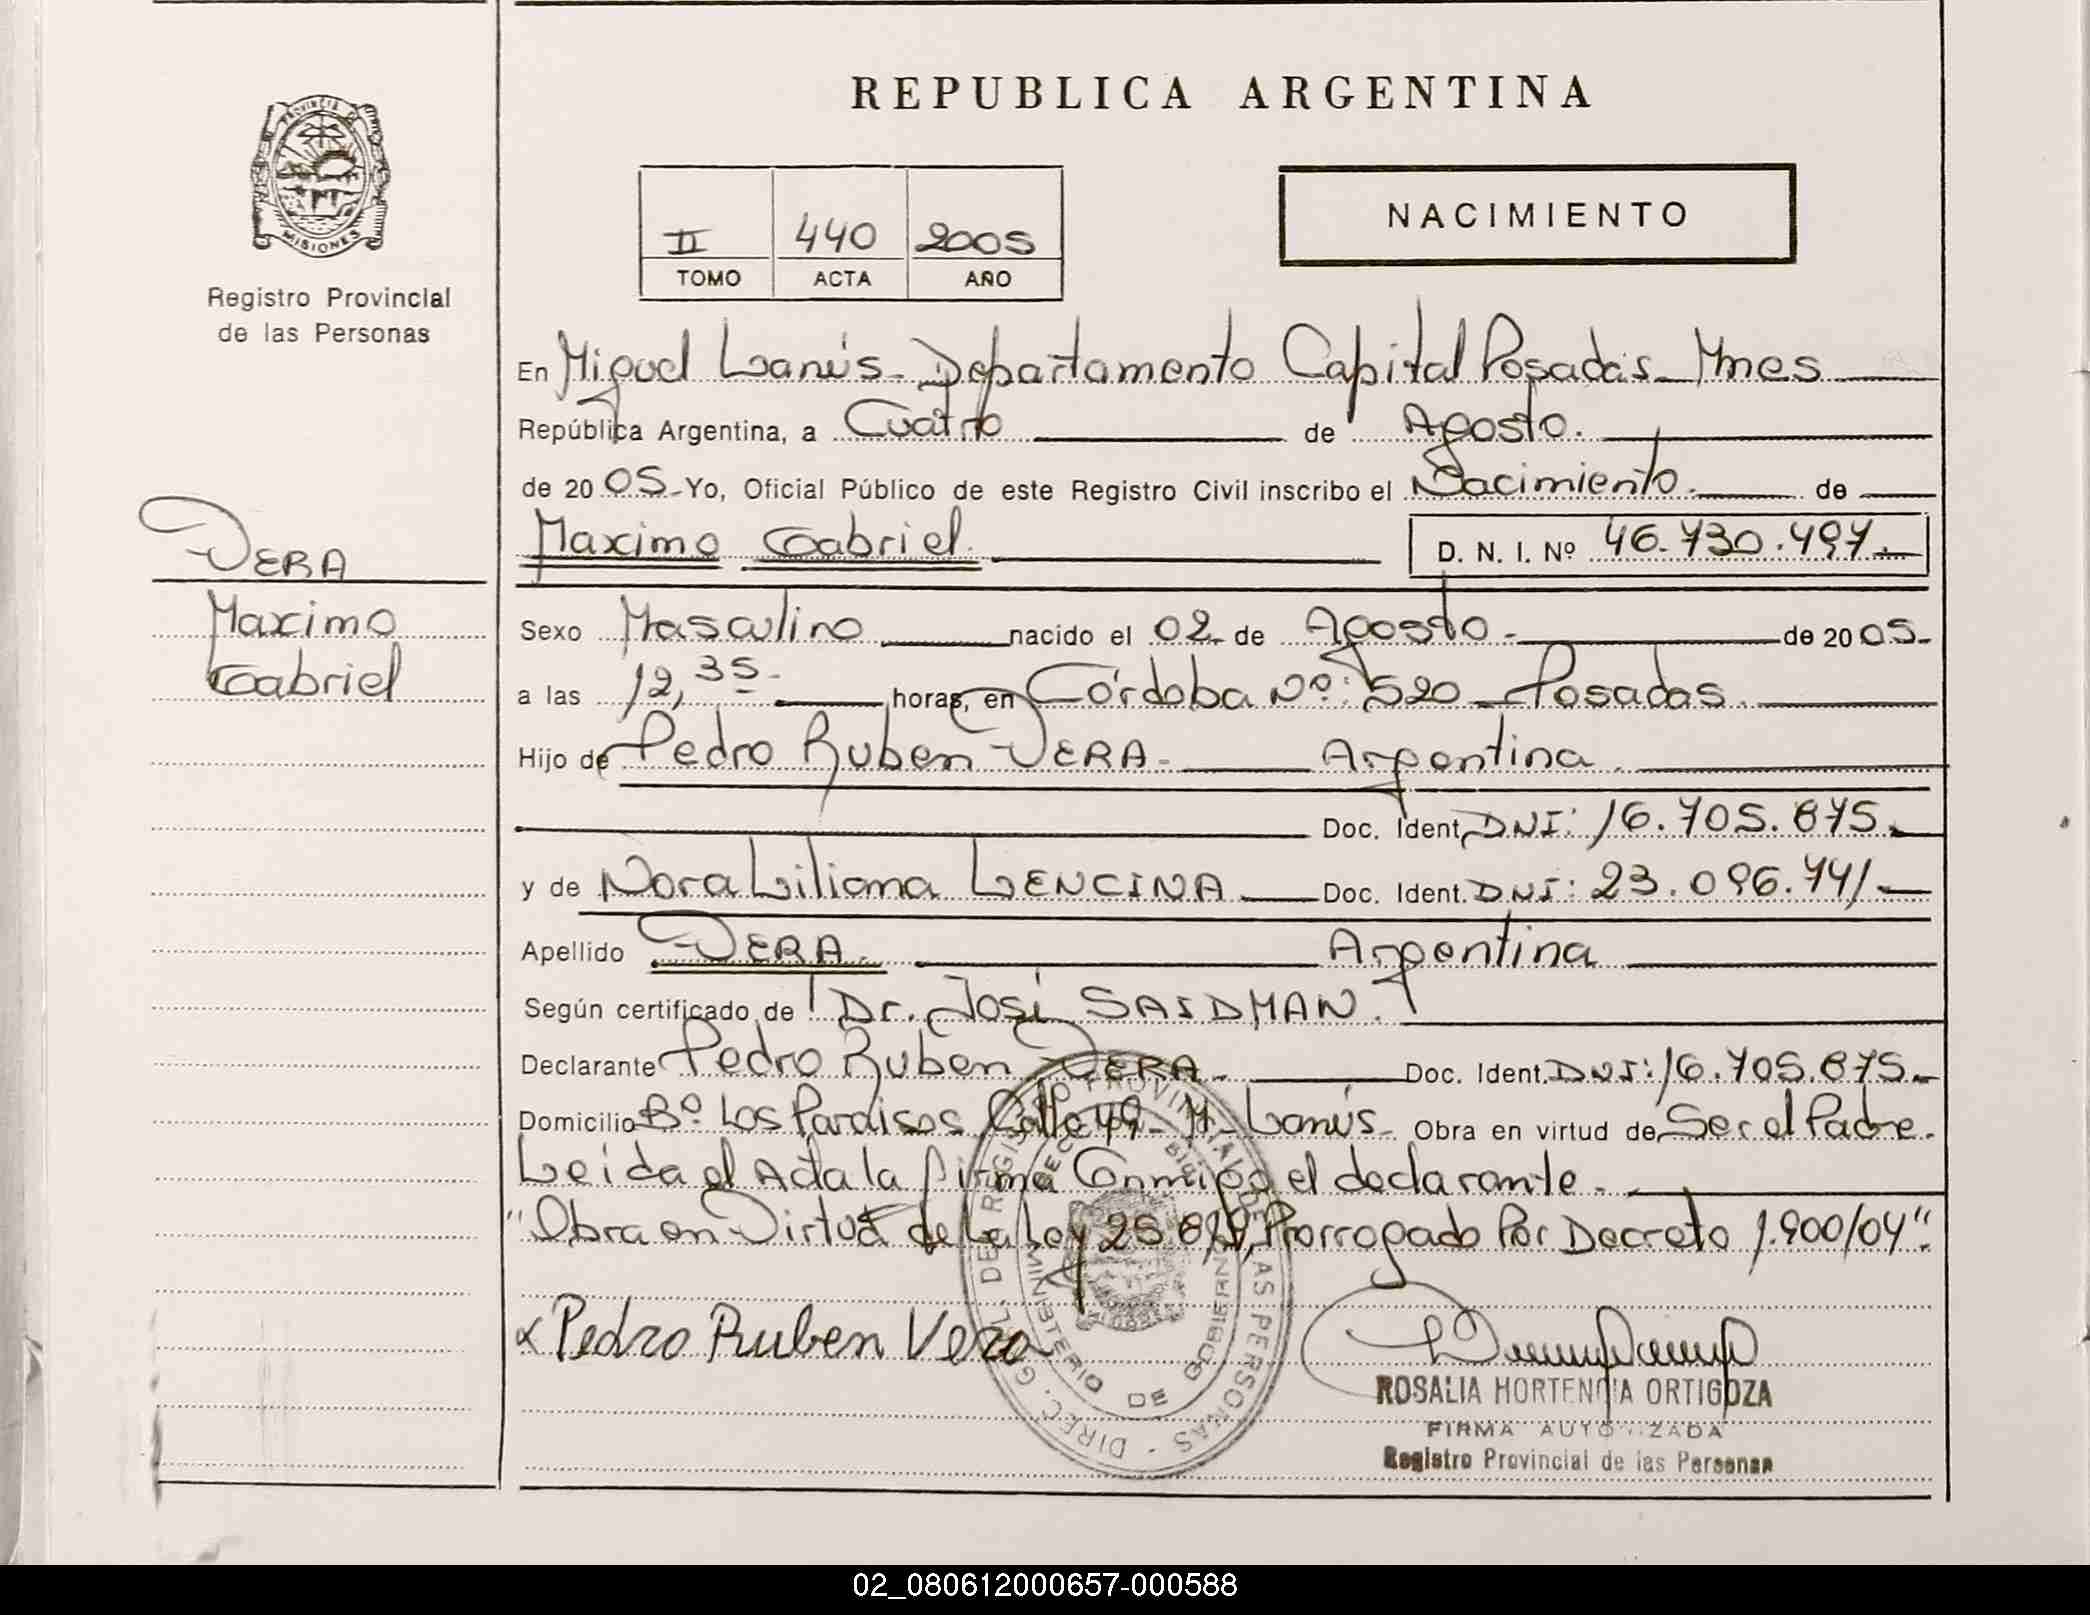 REPUBLICA ARGENTINA
PROVINCIA DE
MISIONES
Registro Provincial
de las Personas
II 440 2005
TOMO ACTA AÑO
NACIMIENTO
En Miguel Lanús - Departamento Capital Posadas - Mnes
República Argentina, a Cuatro de Agosto.
de 2005 - Yo, Oficial Público de este Registro Civil inscribo el Nacimiento. de
Maximo Gabriel. D. N. I. Nº 46.730.497.
VERA
Maximo
Gabriel
Sexo Masculino nacido el 02 de Agosto - de 2005 -
a las 12,35 - horas, en Córdoba Nº: 520 - Posadas.
Hijo de Pedro Ruben VERA - Argentina.
Doc. Ident. DNI: 16.705.875.
y de Nora Liliana LENCINA Doc. Ident. DNI: 23.096.741
Apellido VERA. Argentina
Según certificado de Dr. José SAIDMAN.
Declarante Pedro Ruben VERA - Doc. Ident. DNI: 16.705.875 -
Domicilio Bº Los Paraisos Calle 49 - M - Lanús - Obra en virtud de Ser el Padre.
Leida el Acta la firma Conmigo el declarante.
"Obra en Virtud de la Ley 25.819, Prorrogado Por Decreto 1.900/04".
Pedro Ruben Vera
DIREC. GRAL. DE REGISTRO PROVINCIAL DE LAS PERSONAS
MINISTERIO DE GOBIERNO
ROSALIA HORTENCIA ORTIGOZA
FIRMA AUTORIZADA
Registro Provincial de las Personas
02_080612000657-000588